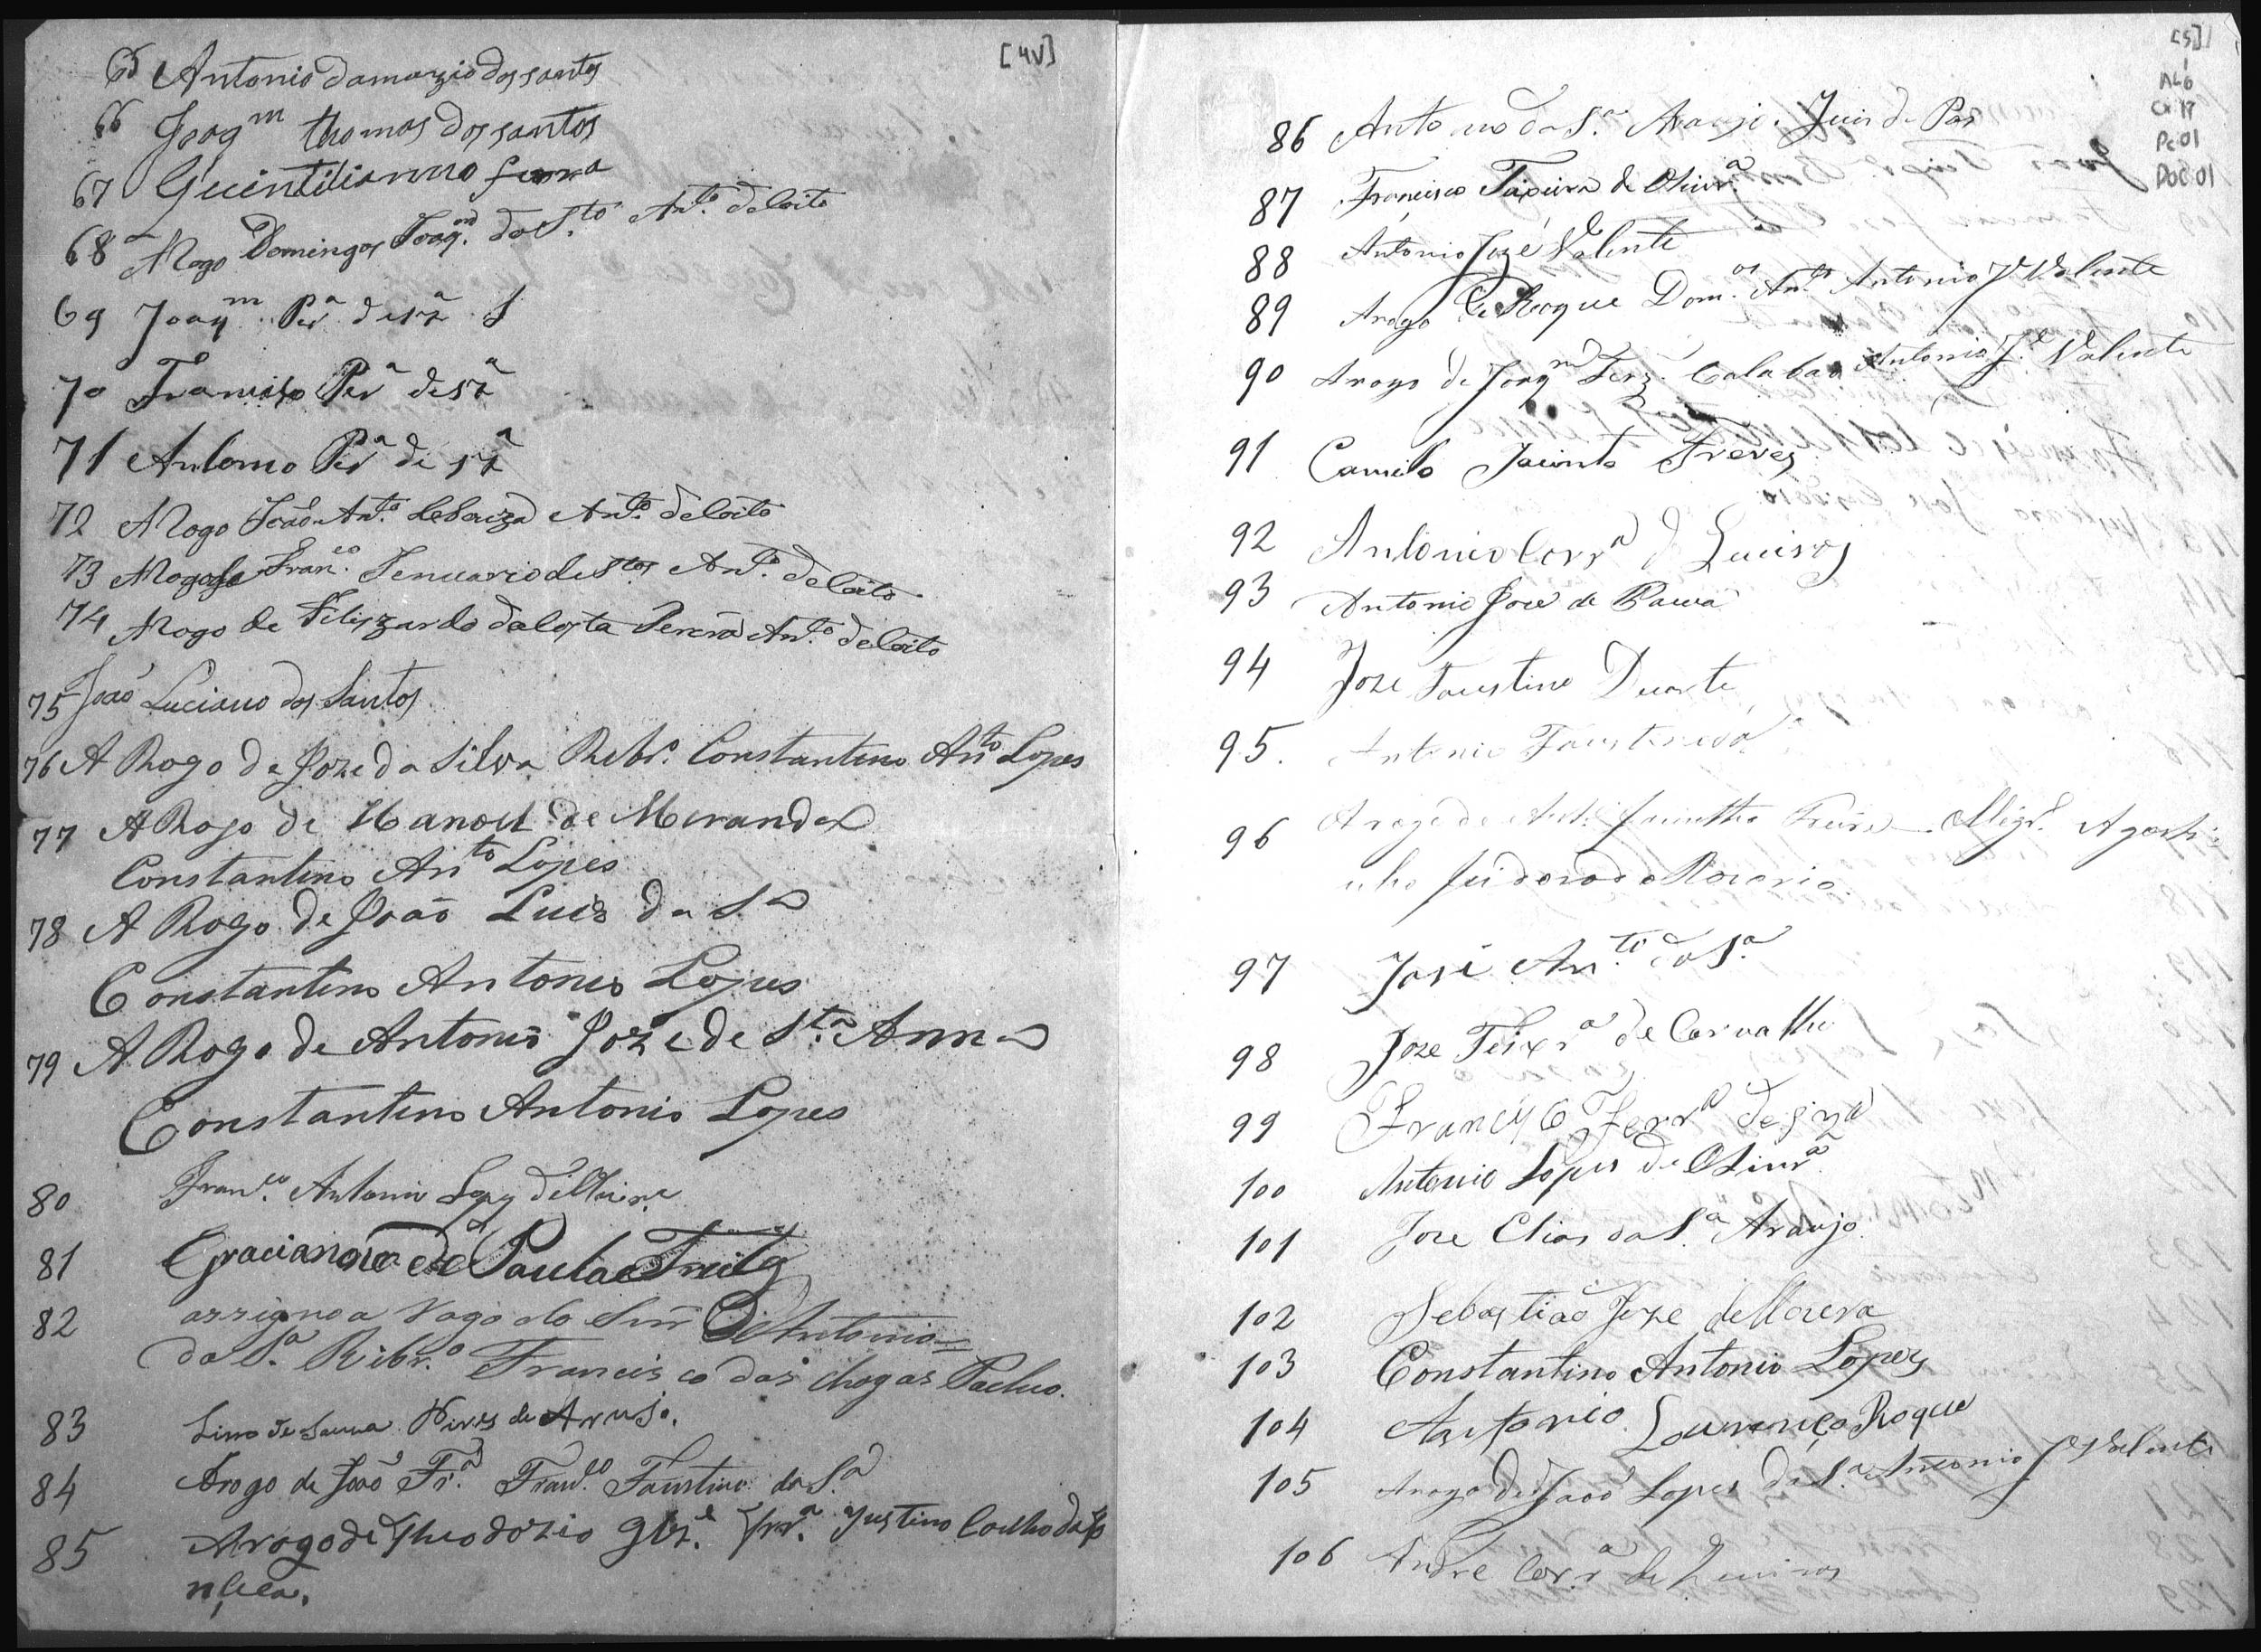 [4V]
65 Antonio Damazio dos santos
66 Joaq.m thomas dos santos
67 Quintilianno
68 A Rogo Domingos Joaq.m da S.to Ant.o de Coito
69 Joaq.m Per.a de sz.a
70 Francisco Per.a de sz.a
71 Antonio Per.a de sz.a
72 A Rogo João Ant.o de Souza Ant.o de Coito
73 A Rogo de Fran.co Jenuario de S.tos Ant.o de Coito
74 A Rogo de Felizardo da Costa Pereira Ant.o de Coito
75 João Luciano dos Santos
76 A Rogo de Joze da Silva Ribr.o Constantino An.to Lopes
77 A Rogo de Manoel de Miranda
Constantino An.to Lopes
78 A Rogo de João Luis da S.a
Constantino Antonio Lopes
79 A Rogo de Antonio Joze de S.ta Anna
Constantino Antonio Lopes
80 Fran.co Antonio Lopes
81 Gracianno de Paula Freitas
82 assigno a rogo do Snr Antonio
da S.a Ribr.o Francisco das chagas Pacheco
83 Lino de Souza Nives de Arujo.
84 Arogo de João Fr.a Fran.co Faustino da S.a
85 Arogo de Theodozio Glz. Frr.a Justino Coelho da fo
nceca.
[5]
AL6
CX 17
Pc 01
DOC 01
86 Antonio da S.a Araujo Juis de Pas
87 Francisco Teixeira de Olivr.a
88 Antonio Jozé Valente
89 Arogo de Roque Dom.os An.to Antonio J.e Valente
90 Arogo de Joaq.m Ferz. Calabao Antonio J.e Valente
91 Camilo Jacinto Freres
92 Antonio Corr.a d Queiros
93 Antonio Joze de Paiva
94 Joze Faustino Duarte
95. Antonio Faustino da
96 A rogo de Ant.o Jacintho Freire Agosti=
nho Izidoro do Rozario.
97 José An.to da S.a
98 Joze Teixr.a de Carvalho
99 Francisco Ferr.a de sza
100 Antonio Lopes de Olivr.a
101 Joze Elias da S.a Araujo
102 Sebastião Joze de Moura
103 Constantino Antonio Lopes
104 Antonio Lourenço Roque
105 Arogo de João Lopes da S.a Antonio J.e Valente
106 Andre Corr.a de Queiros